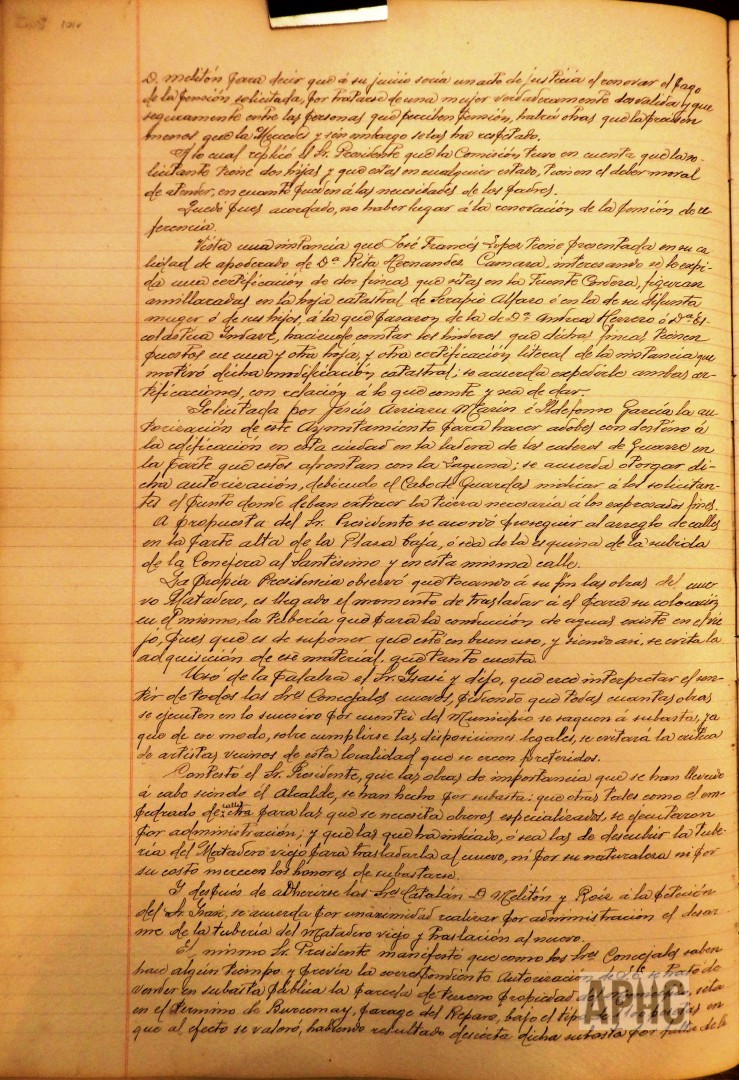 D. Melitón para decir que á su juicio sería un acto de justicia el renovar el pago
de la pensión solicitada, por tratarse de una mujer verdaderamente desvalida y que
seguramente entre las personas que perciben pensión, habrá otras que la precisen
menos que la Mercedes y sin embargo se las ha respetado.
A lo cual replicó el Sr. Presidente que la Comisión tuvo en cuenta que la so-
licitante tiene dos hijas, y que estas en cualquier estado, tienen el deber moral
de atender, en cuanto pueden á las necesidades de los padres.
Quedó pues acordado, no haber lugar á la renovación de la pensión de re-
ferencia.
Vista una instancia que José Francés Lopez tiene presentada en su ca-
lidad de apoderado de Dª Rita Hernandez Camara, interesando se le expi-
da una certificación de dos fincas que sitas en la Fuente Ordera, figuran
amillaradas en la hoja catastral de Serapio Alfaro ó en la de su difunta
muger ó de sus hijos, á la que pasaron de la de Dª Andrea Herrero ó Dª Es-
colastica, haciendo constar los linderos que dichas fincas tienen
puestos en una y otra hoja, y otra certificación literal de la instancia que
motivó dicha modificación catastral; se acuerda expedirle ambas cer-
tificaciones, con relación á lo que conste y sea de dar.
Solicitada por Jesús Marin é Ildefonso García la au-
torización de este Ayuntamiento para hacer adobes con destino á
la edificación en esta ciudad en la ladera de los cabezos de en
la parte que estos afrontan con la Laguna; se acuerda otorgar di-
cha autorización, debiendo el Cabo de Guardas indicar á los solicitan-
tes el punto donde deban extraer la tierra necesaria á los expresados fines.
A propuesta del Sr. Presidente se acordó proseguir al arreglo de calles
en la parte alta de la Plaza baja, ó sea de la esquina de la subida
de la Conejera al Santísimo y en esta misma calle.
La propia Presidencia observó que tocando á su fin las obras del nue-
vo Matadero, es llegado el momento de trasladar á él para su colocación
en el mismo, la tubería que para la conducción de aguas existe en el vie-
jo, pues que es de suponer que esté en buen uso, y siendo asi, se evita la
adquisición de ese material, que tanto cuesta.
Usó de la palabra el Sr. Isasi y dijo, que cree interpretar el sen-
tir de todos los Sres Concejales nuevos, pidiendo que todas cuantas obras
se ejecuten en lo sucesivo por cuenta del Municipio se saquen á subasta, ya
que de ese modo, sobre cumplirse las disposiciones legales, se evitará la crítica
de artistas vecinos de esta localidad que se creen preteridos.
Contestó el Sr. Presidente, que las obras de importancia que se han llevado
á cabo siendo él Alcalde, se han hecho por subasta: que otras tales como el em-
pedrado de calles para las que se necesita obreros especializados, se ejecutaron
por administración; y que las que ha indicado, ó sea las de descubrir la tube-
ría del Matadero viejo para trasladarla al nuevo, ni por su naturaleza ni por
su costo merecen los honores de subastarse.
Y después de adherirse los Sres Catalán D Melitón y Roiz á la petición
del Sr Isasi, se acuerda por unanimidad realizar por administración el desar-
me de la tubería del Matadero viejo y traslación al nuevo.
El mismo Sr. Presidente manifestó que como los Sres Concejales saben
hace algún tiempo y previa la correspondiente autorización se trató de
vender en subasta pública la parcela de terreno propiedad del sita
en el término de Burcemay, parage del Reparo, bajo el tipo en
que al efecto se valoró, habiendo resultado desierta dicha subasta por falta de
APHC